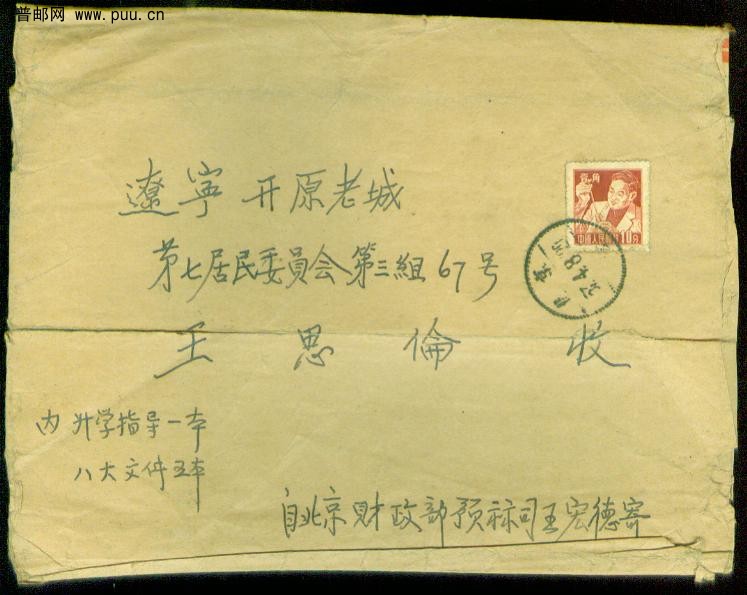 普邮网 www.puu.cn
遼寧 开原老城
第七居民委員会第三組67号
王 思 倫 收
内 升学指导一本
八大文件五本
自北京财政部预祘司王宏德寄
壹角
10分
57.4.8